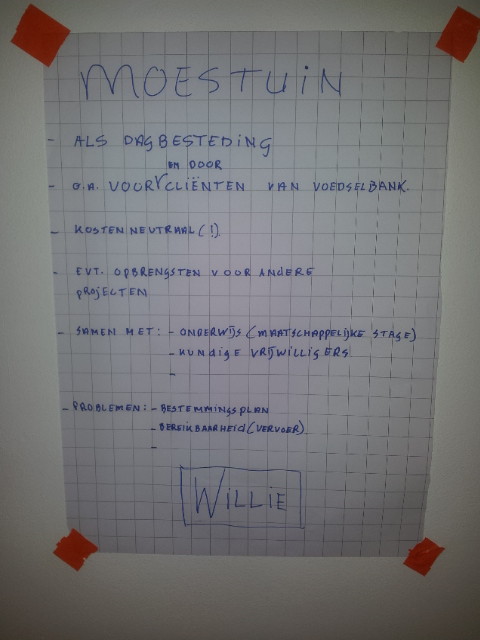 MOESTUIN
- ALS DAGBESTEDING
en DOOR
- O.A. VOOR CLIËNTEN VAN VOEDSELBANK.
- KOSTEN NEUTRAAL (!)
- EVT. OPBRENGSTEN VOOR ANDERE
PROJECTEN
- SAMEN MET: - ONDERWIJS (MAATSCHAPPELIJKE STAGE)
- KUNDIGE VRIJWILLIGERS
-
- PROBLEMEN: - BESTEMMINGSPLAN
- BEREIKBAARHEID (VERVOER)
-
WILLIE